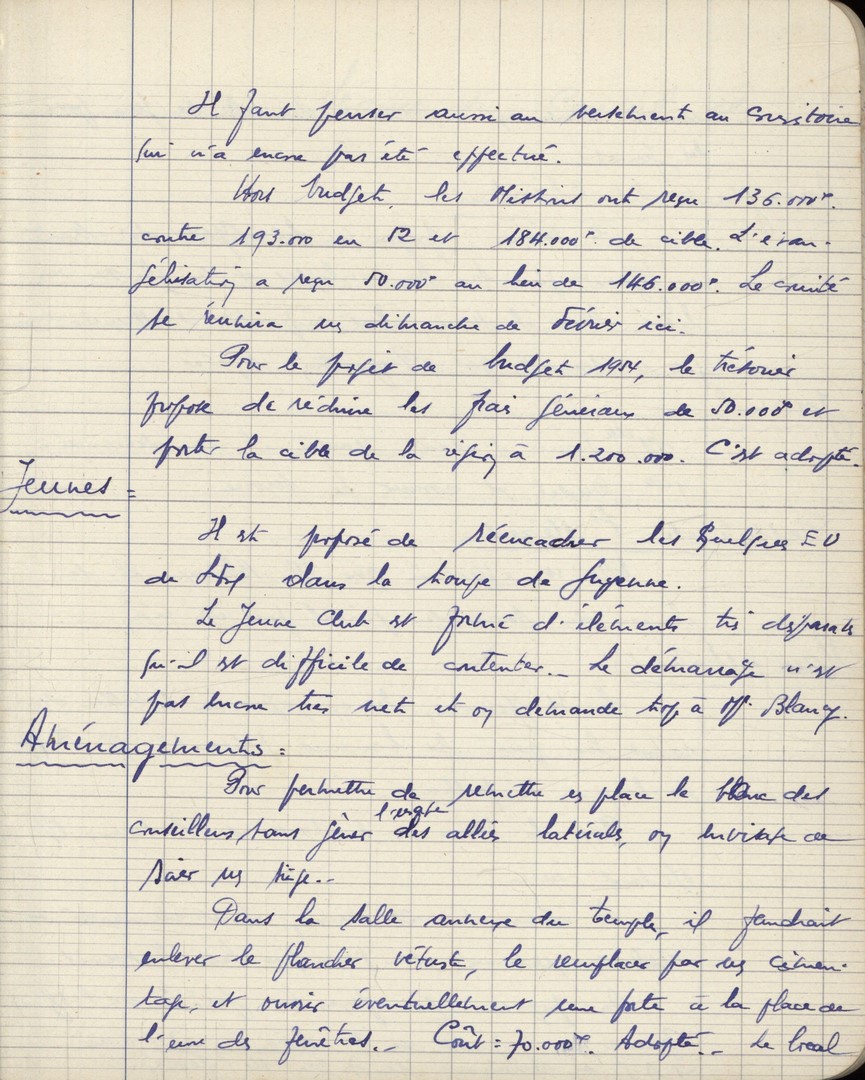 Il faut penser aussi au versements au consistoire
qui n'a encore pas été effectué.
Hors budget, les Missions ont reçu 136.000F.
contre 193.000 en 52 et 184.000F. de cible. L'évan-
gélisation a reçu 50.000F au lieu de 146.000F. Le comité
se réunira un dimanche de Février ici.
Pour le projet de budget 1954, le trésorier
propose de réduire les frais généraux de 50.000F et
porter la cible de la région à 1.200.000. C'est adopté.
Jeunes =
Il est proposé de réencadrer les quelques EU
de dans la troupe de Guyenne.
Le Jeune Club est formé d'éléments très disparats
qu'il est difficile de contenter._ Le démarrage n'est
pas encore très net et on demande trop à Mr. Blancy.
Aménagements =
Pour permettre de remettre en place le banc des
conseillers, sans gêner l'usage des allées latérales, on envisage de
scier un siège._
Dans la salle annexe du temple, il faudrait
enlever le plancher vétuste, le remplacer par un cimen-
tage, et ouvrir éventuellement une porte à la place de
l'une des fenêtres._ Coût = 70.000F. Adopté._ Le local